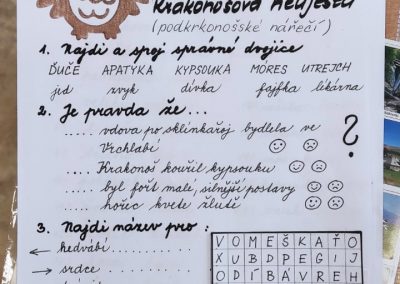 Krakonošova
(podkrkonošské nářečí)
1. Najdi a spoj správné dvojice
ĎUČE APATYKA KYPSOUKA MÓRES UTREJCH
jed zvyk dívka fajfka lékárna
2. Je pravda že...
..... vdova po sklinkařoj bydlela ve
Vrchlabí
..... Krakonoš kouřil kypsouku
..... byl fořt malé, silnější postavy
..... hořec kvete žlutě
?
3. Najdi název pro :
← hedvábí .....
→ srdce
V O M E Š K A Ť O
X U B D P E G I J
O D Í B Á V R E H